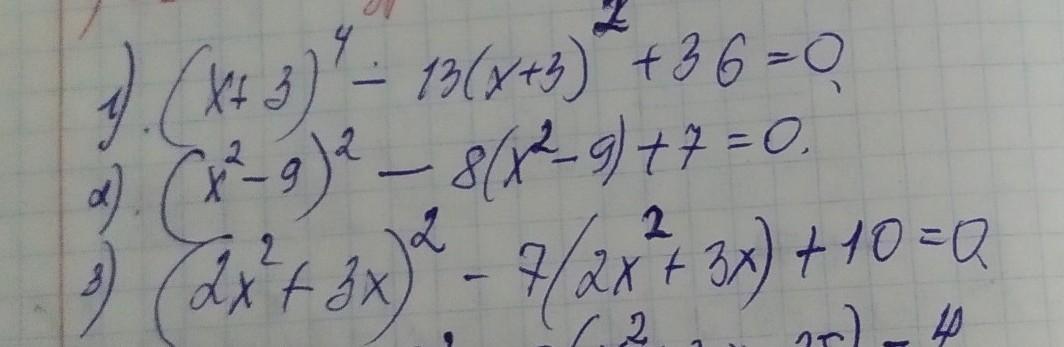 1). (x+3)⁴ - 13(x+3)² + 36 = 0
2). (x² - 9)² - 8(x² - 9) + 7 = 0.
3) (2x² + 3x)² - 7(2x² + 3x) + 10 = 0